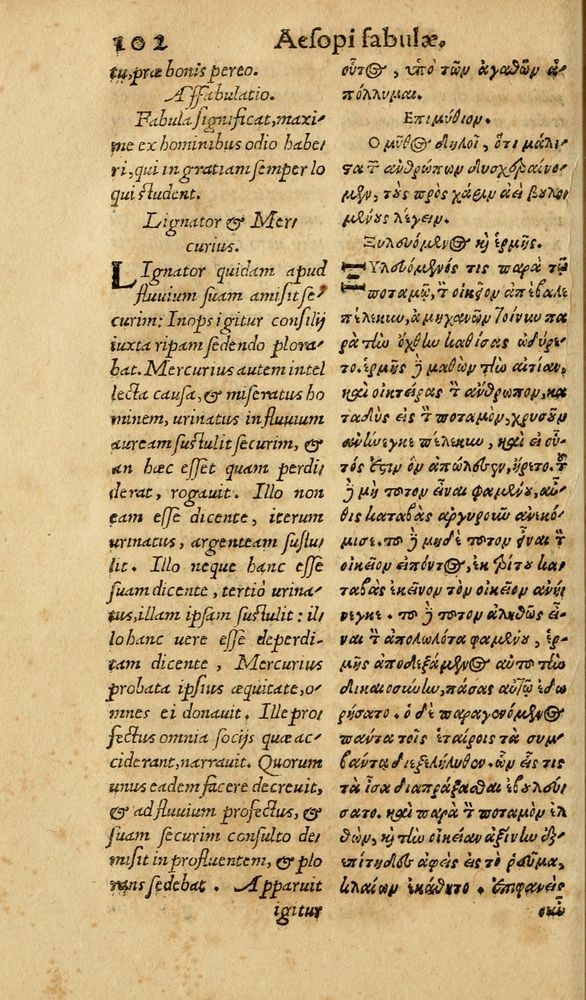 102 Aesopi fabulæ.
tu, præ bonis pereo.
Affabulatio.
Fabula significat, maxi-
me ex hominibus odio habe-
ri, qui in gratiam semper lo
qui student.
Lignator & Mer-
curius.
Lignator quidam apud
fluuium suam amisit se-
curim: Inops igitur consilij
iuxta ripam sedendo plora-
bat. Mercurius autem intel
lecta causa, & miseratus ho
minem, urinatus in fluuium
auream sustulit securim, &
an hæc esset quam perdi-
derat, rogauit. Illo non
eam esse dicente, iterum
urinatus, argenteam sustu-
lit. Illo neque hanc esse
suam dicente, tertiò urina-
tus, illam ipsam sustulit: il-
lo hanc uere esse deperdi-
tam dicente, Mercurius
probata ipsius æquitate, o-
mnes ei donauit. Ille pro-
fectus omnia socijs quæ ac-
ciderant, narrauit. Quorum
unus eadem facere decreuit,
& ad fluuium profectus, &
suam securim consulto de-
misit in profluentem, & plo
rans sedebat. Apparuit
igitur
οὗτος, ὑπὸ τῶν ἀγαθῶν ἀ-
πόλλυμαι.
Επιμύθιον.
Ο μῦθος δηλοῖ, ὅτι μάλι-
στα τ̃ ἀνθρώπων δυσχεραίνο-
μεν, τοὺς πρὸς χάριν ἀεὶ βουλο-
μένους λέγειν.
Ξυλευόμενος κὴ ἑρμῆς.
Ξυλευόμενός τις παρὰ τῷ
ποταμῷ, τ̀ οἰκεῖον ἀπέβαλε
πέλεκυν, ἀμηχανῶν τοίνυν πα
ρὰ τὴν ὄχθην καθίσας ὠδύρε-
το. ἑρμῆς ἢ μαθὼν τὴν αἰτίαν,
καὶ οἰκτείρας τ̀ ἄνθρωπον, κα
ταδὺς εἰς τ̀ ποταμὸν, χρυσοῦν
ἀνήνεγκε πέλεκυν, καὶ εἰ οὗ-
τός ἐστιν ὃν ἀπώλεσεν, ἤρετο. τ̃
ἢ μὴ τοῦτον εἶναι φαμένου, αὖ-
θις καταβὰς ἀργυροῦν ἀνεκό-
μισε. τοῦ ἢ μηδὲ τοῦτον εἶναι τ̀
οἰκεῖον εἰπόντος, ἐκ τρίτου κα-
ταβὰς ἐκεῖνον τὸν οἰκεῖον ἀνή-
νεγκε. τοῦ ἢ τοῦτον ἀληθῶς εἶ-
ναι τ̀ ἀπολωλότα φαμένου, ἑρ-
μῆς ἀποδεξάμενος αὐτοῦ τὴν
δικαιοσύνην, πάσας αὐτῷ ἐδω
ρήσατο. ὁ δὲ παραγενόμενος
πάντα τοῖς ἑταίροις τὰ συμ-
βάντα διεξελήλυθεν. ὧν εἷς τις
τὰ ἶσα διαπράξασθαι ἐβουλεύ-
σατο. καὶ παρὰ τ̀ ποταμὸν ἐλ
θὼν, κὴ τὴν οἰκείαν ἀξίνην ἐξ-
επίτηδες ἀφεὶς εἰς τὸ ῥεῦμα,
κλαίων ἐκάθητο. ἐπιφανεὶς
οὖν